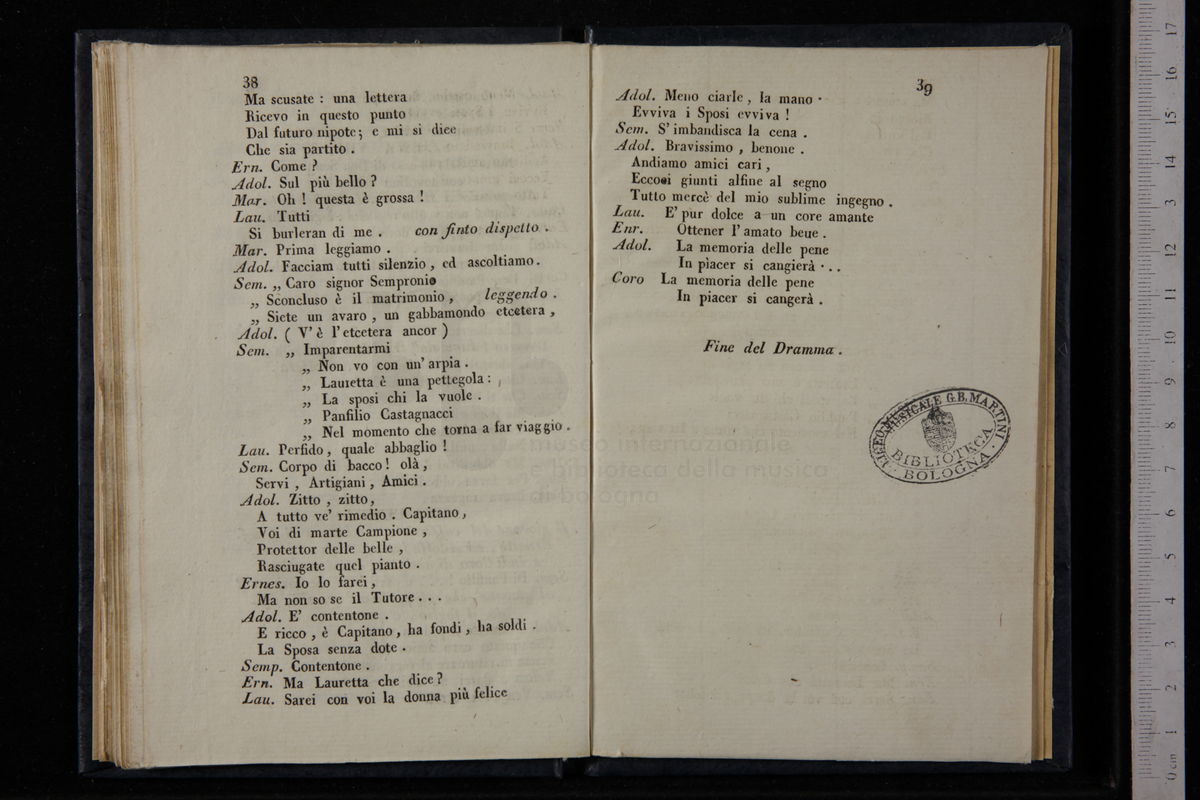 38
Ma scusate : una lettera
Ricevo in questo punto
Dal futuro nipote; e mi si dice
Che sia partito .
Ern. Come ?
Adol. Sul più bello ?
Mar. Oh ! questa è grossa !
Lau. Tutti
Si burleran di me . con finto dispetto .
Mar. Prima leggiamo .
Adol. Facciam tutti silenzio , ed ascoltiamo.
Sem. „ Caro signor Sempronio
„ Sconcluso è il matrimonio , leggendo .
„ Siete un avaro , un gabbamondo etcetera ,
Adol. ( V' è l' etcetera ancor )
Sem. „ Imparentarmi
„ Non vo con un' arpia .
„ Lauretta è una pettegola :
„ La sposi chi la vuole .
„ Panfilio Castagnacci
„ Nel momento che torna a far viaggio .
Lau. Perfido , quale abbaglio !
Sem. Corpo di bacco ! olà ,
Servi , Artigiani , Amici .
Adol. Zitto , zitto,
A tutto ve' rimedio . Capitano ,
Voi di marte Campione ,
Protettor delle belle ,
Rasciugate quel pianto .
Ernes. Io lo farei ,
Ma non so se il Tutore . . .
Adol. E' contentone .
E ricco , è Capitano , ha fondi , ha soldi .
La Sposa senza dote .
Semp. Contentone .
Ern. Ma Lauretta che dice ?
Lau. Sarei con voi la donna più felice
39
Adol. Meno ciarle , la mano .
Evviva i Sposi evviva !
Sem. S' imbandisca la cena .
Adol. Bravissimo , benone .
Andiamo amici cari ,
Eccoci giunti alfine al segno
Tutto mercè del mio sublime ingegno .
Lau. E' pur dolce a un core amante
Enr. Ottener l' amato bene .
Adol. La memoria delle pene
In piacer si cangierà . . .
Coro La memoria delle pene
In piacer si cangerà .
Fine del Dramma .
LICEO MUSICALE G.B. MARTINI
BIBLIOTECA
BOLOGNA
museo internazionale
e biblioteca della musica
di bologna
0 cm 1 2 3 4 5 6 7 8 9 10 11 12 13 14 15 16 17